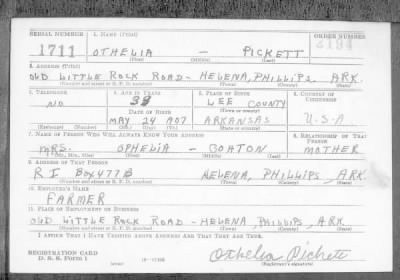 SERIAL NUMBER 1. NAME (Print) ORDER NUMBER
1711 OTHELIA — PICKETT 2194
(First) (Middle) (Last)
2. ADDRESS (Print)
OLD LITTLE ROCK ROAD - HELENA, PHILLIPS ARK.
(Number and street or R. F. D. number) (Town) (County) (State)
3. TELEPHONE 4. AGE IN YEARS 5. PLACE OF BIRTH 6. COUNTRY OF CITIZENSHIP
NO 33 LEE COUNTY
DATE OF BIRTH (Town or county)
MAY 24 1907 ARKANSAS U-S-A
(Exchange) (Number) (Mo.) (Day) (Yr.) (State or country)
7. NAME OF PERSON WHO WILL ALWAYS KNOW YOUR ADDRESS 8. RELATIONSHIP OF THAT PERSON
MRS. OPHELIA — GOATON MOTHER
(Mr., Mrs., Miss) (First) (Middle) (Last)
9. ADDRESS OF THAT PERSON
R I BOX 477B HELENA, PHILLIPS, ARK.
(Number and street or R. F. D. number) (Town) (County) (State)
10. EMPLOYER'S NAME
FARMER
11. PLACE OF EMPLOYMENT OR BUSINESS
OLD LITTLE ROCK ROAD - HELENA, PHILLIPS, ARK
(Number and street or R. F. D. number) (Town) (County) (State)
I AFFIRM THAT I HAVE VERIFIED ABOVE ANSWERS AND THAT THEY ARE TRUE.
REGISTRATION CARD
D. S. S. Form 1 Othelia Pickett
(Registrant's signature)